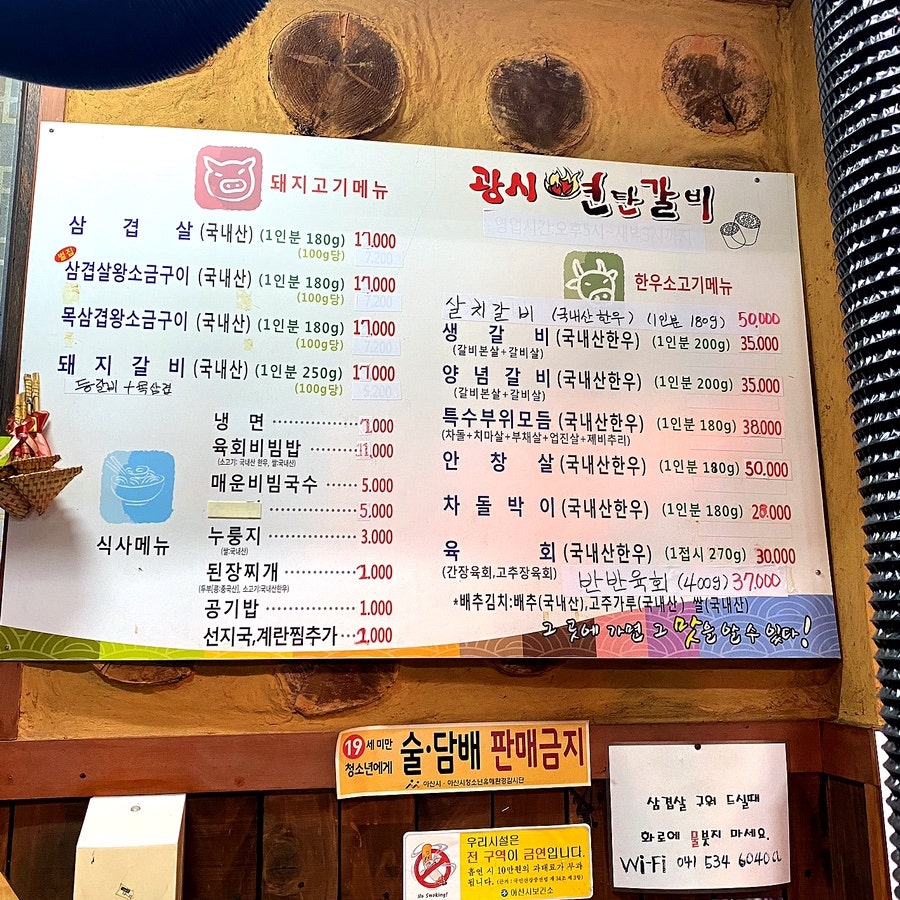 돼지고기메뉴
삼 겹 살 (국내산) (1인분 180g) 17,000
(100g당)
별집
삼겹살왕소금구이 (국내산) (1인분 180g) 17,000
(100g당)
목삼겹왕소금구이 (국내산) (1인분 180g) 17,000
(100g당) 7,200
돼 지 갈 비 (국내산) (1인분 250g) 17,000
등갈비 + 목삼겹 (100g당)
식사메뉴
냉 면
육회비빔밥 11,000
(소고기: 국내산 한우, 쌀:국내산)
매운비빔국수 5,000
5,000
누룽지 3,000
(쌀:국내산)
된장찌개
(두부(콩:중국산), 소고기:국내산한우)
공기밥 1,000
선지국,계란찜추가
광시 연탄갈비
영업시간:오후5시~새벽3시까지
한우소고기메뉴
살치갈비 (국내산 한우) (1인분 180g) 50,000
생 갈 비 (국내산한우) (1인분 200g) 35,000
(갈비본살+갈비살)
양 념 갈 비 (국내산한우) (1인분 200g) 35,000
(갈비본살+갈비살)
특수부위모듬 (국내산한우) (1인분 180g) 38,000
(차돌+치마살+부채살+업진살+제비추리)
안 창 살 (국내산한우) (1인분 180g) 50,000
차 돌 박 이 (국내산한우) (1인분 180g) 28,000
육 회 (국내산한우) (1접시 270g) 30,000
(간장육회,고추장육회)
반반육회 (400g) 37,000
*배추김치:배추(국내산),고추가루(국내산) 쌀(국내산)
그 곳에 가면 그 맛을 알 수 있다!
19세 미만 청소년에게 술·담배 판매금지
아산시 · 아산시청소년유해환경감시단
우리시설은
전 구역이 금연입니다.
흡연 시 10만원의 과태료가 부과
됩니다. (근거 : 국민건강증진법 제 34조 제 3항)
No Smoking!
아산시보건소
삼겹살 구워 드실때
화로에 물붓지 마세요.
Wi-Fi 041 534 6040a